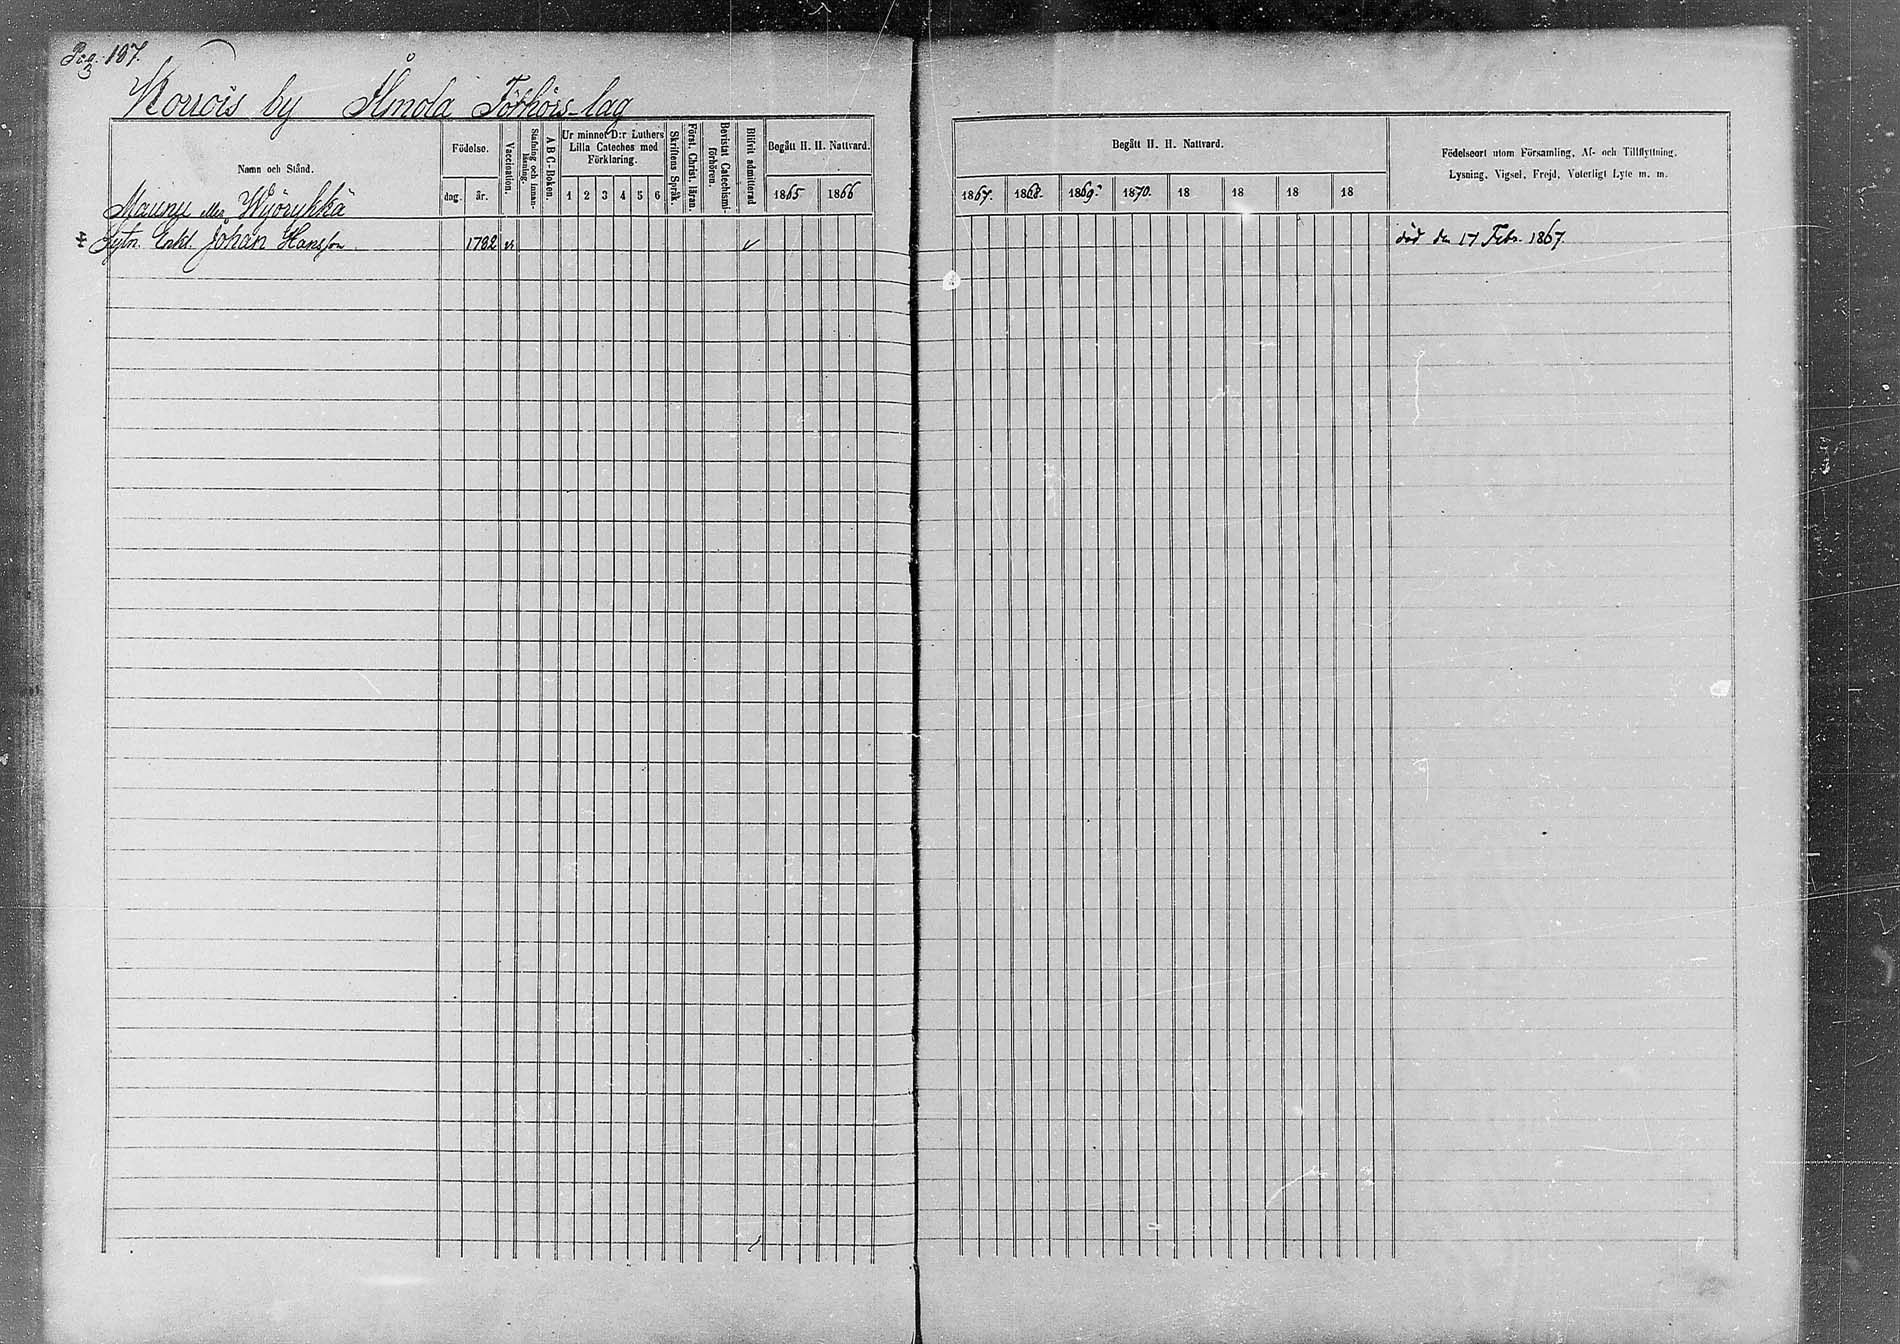 Pag. 107.
by Förhörs-lag
Namn och Stånd.
Födelse.
dag. år.
Vaccination.
Stafning och innan-läsning.
A B C-Boken.
Ur minnet D:r Luthers
Lilla Cateches med
Förklaring.
1 2 3 4 5 6
Skriftens Språk.
Först. Christ. läran.
Bevistat Catechismi-förhören.
Blifvit admitterad
Begått H. H. Nattvard.
1865 1866
Maunu eller
Johan Hansson 1782 v
Begått H. H. Nattvard.
1867. 1868. 1869. 1870. 18 18 18 18
Födelseort utom Församling, Af- och Tillflyttning,
Lysning, Vigsel, Frejd, Veterligt Lyte m. m.
död den 17 Febr. 1867.